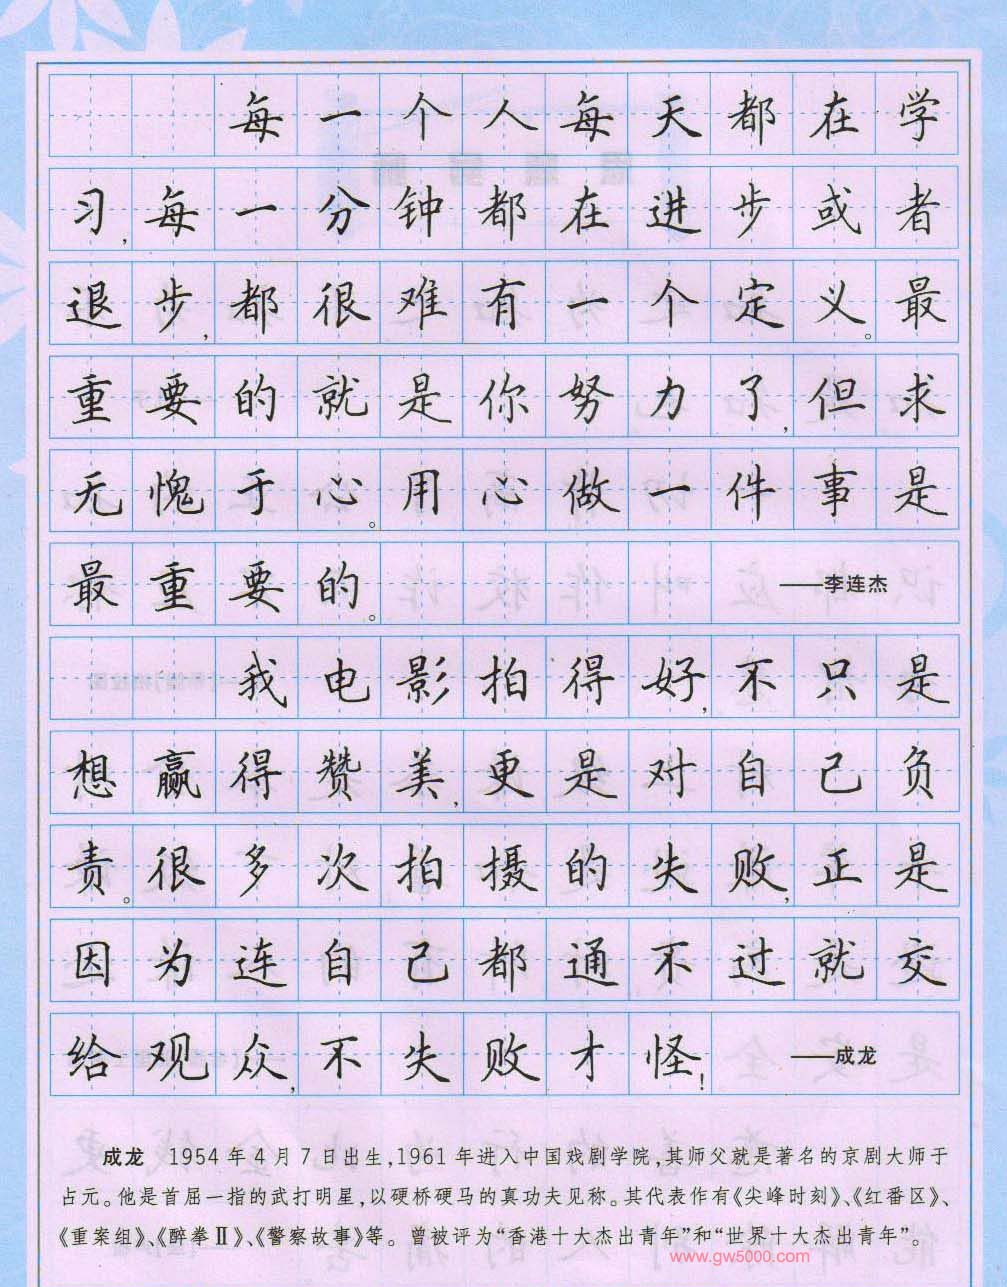 每一个人每天都在学
习,每一分钟都在进步或者
退步,都很难有一个定义。最
重要的就是你努力了,但求
无愧于心。用心做一件事是
最重要的。 ——李连杰
我电影拍得好,不只是
想赢得赞美,更是对自己负
责。很多次拍摄的失败,正是
因为连自己都通不过就交
给观众,不失败才怪! ——成龙
成龙 1954年4月7日出生,1961年进入中国戏剧学院,其师父就是著名的京剧大师于
占元。他是首屈一指的武打明星,以硬桥硬马的真功夫见称。其代表作有《尖峰时刻》、《红番区》、
《重案组》、《醉拳Ⅱ》、《警察故事》等。曾被评为“香港十大杰出青年”和“世界十大杰出青年”。
www.gw5000.com